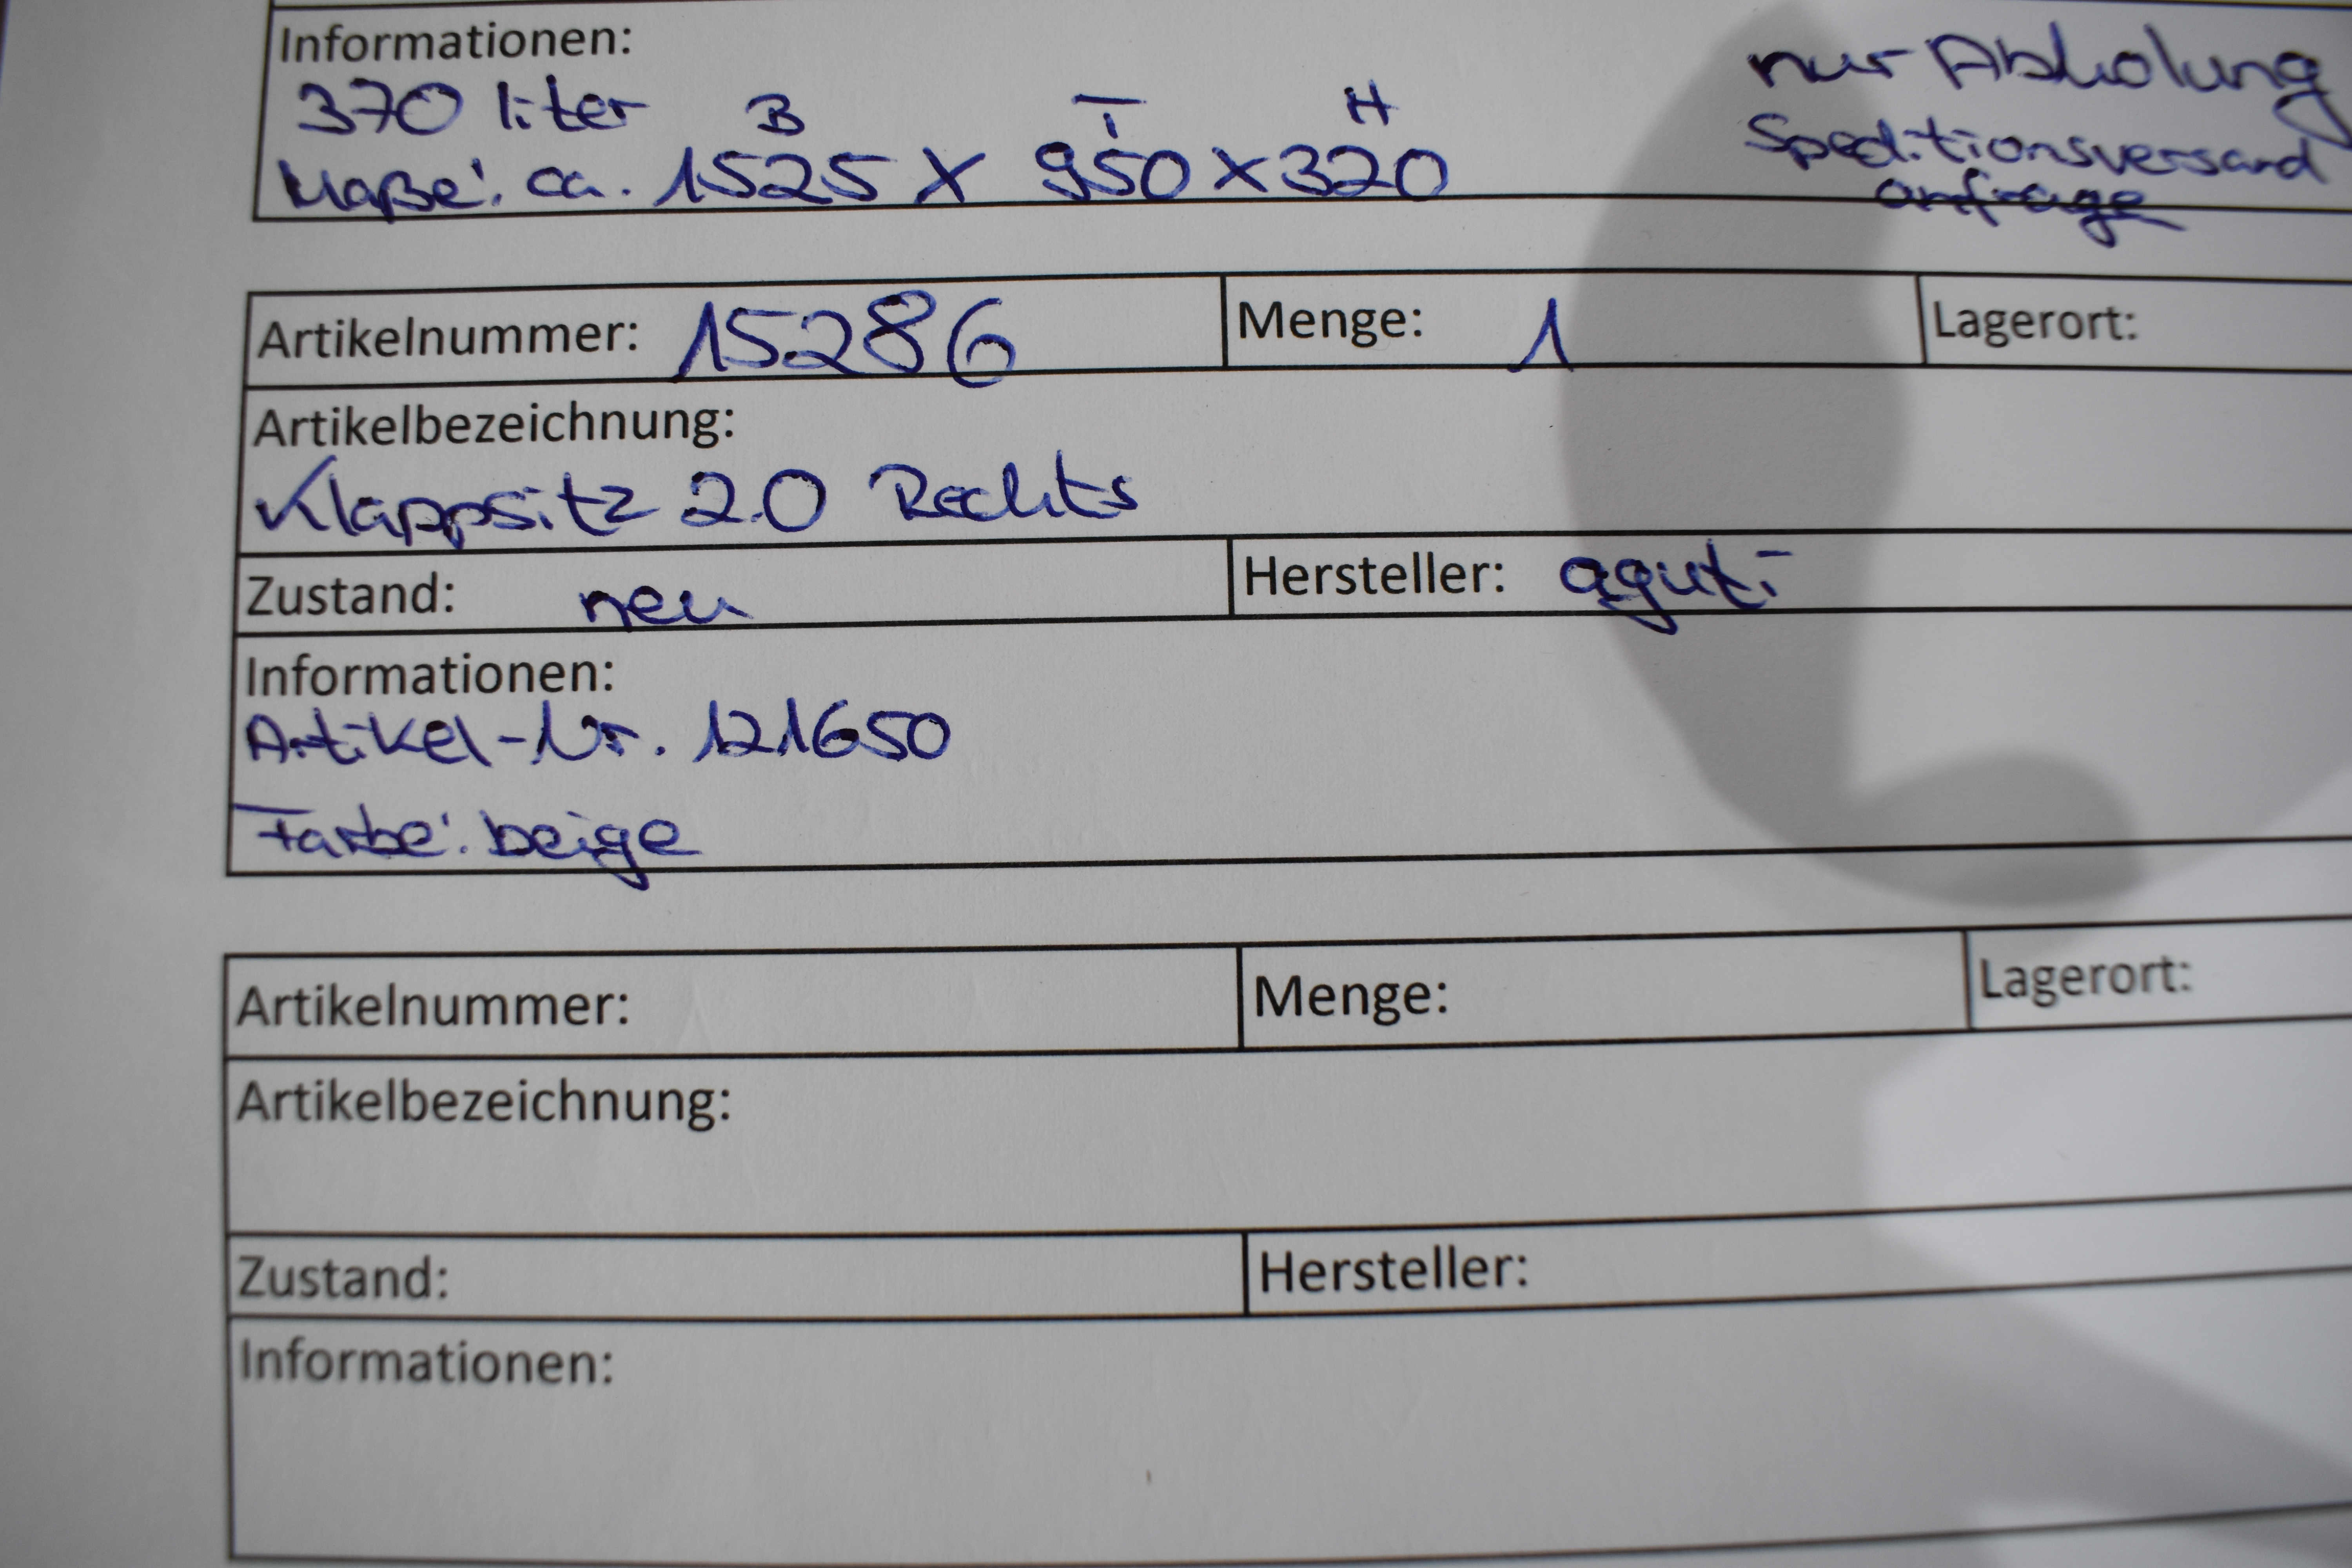 Informationen:
370 liter
B T H
Maße: ca. 1525 x 950 x 320
nur Abholung
Speditionsversand
anfrage
Artikelnummer: 15286 Menge: 1 Lagerort:
Artikelbezeichnung:
Klappsitz 2.0 Rechts
Zustand: neu Hersteller: aguti
Informationen:
Artikel-Nr. 121650
Farbe: beige
Artikelnummer: Menge: Lagerort:
Artikelbezeichnung:
Zustand: Hersteller:
Informationen: